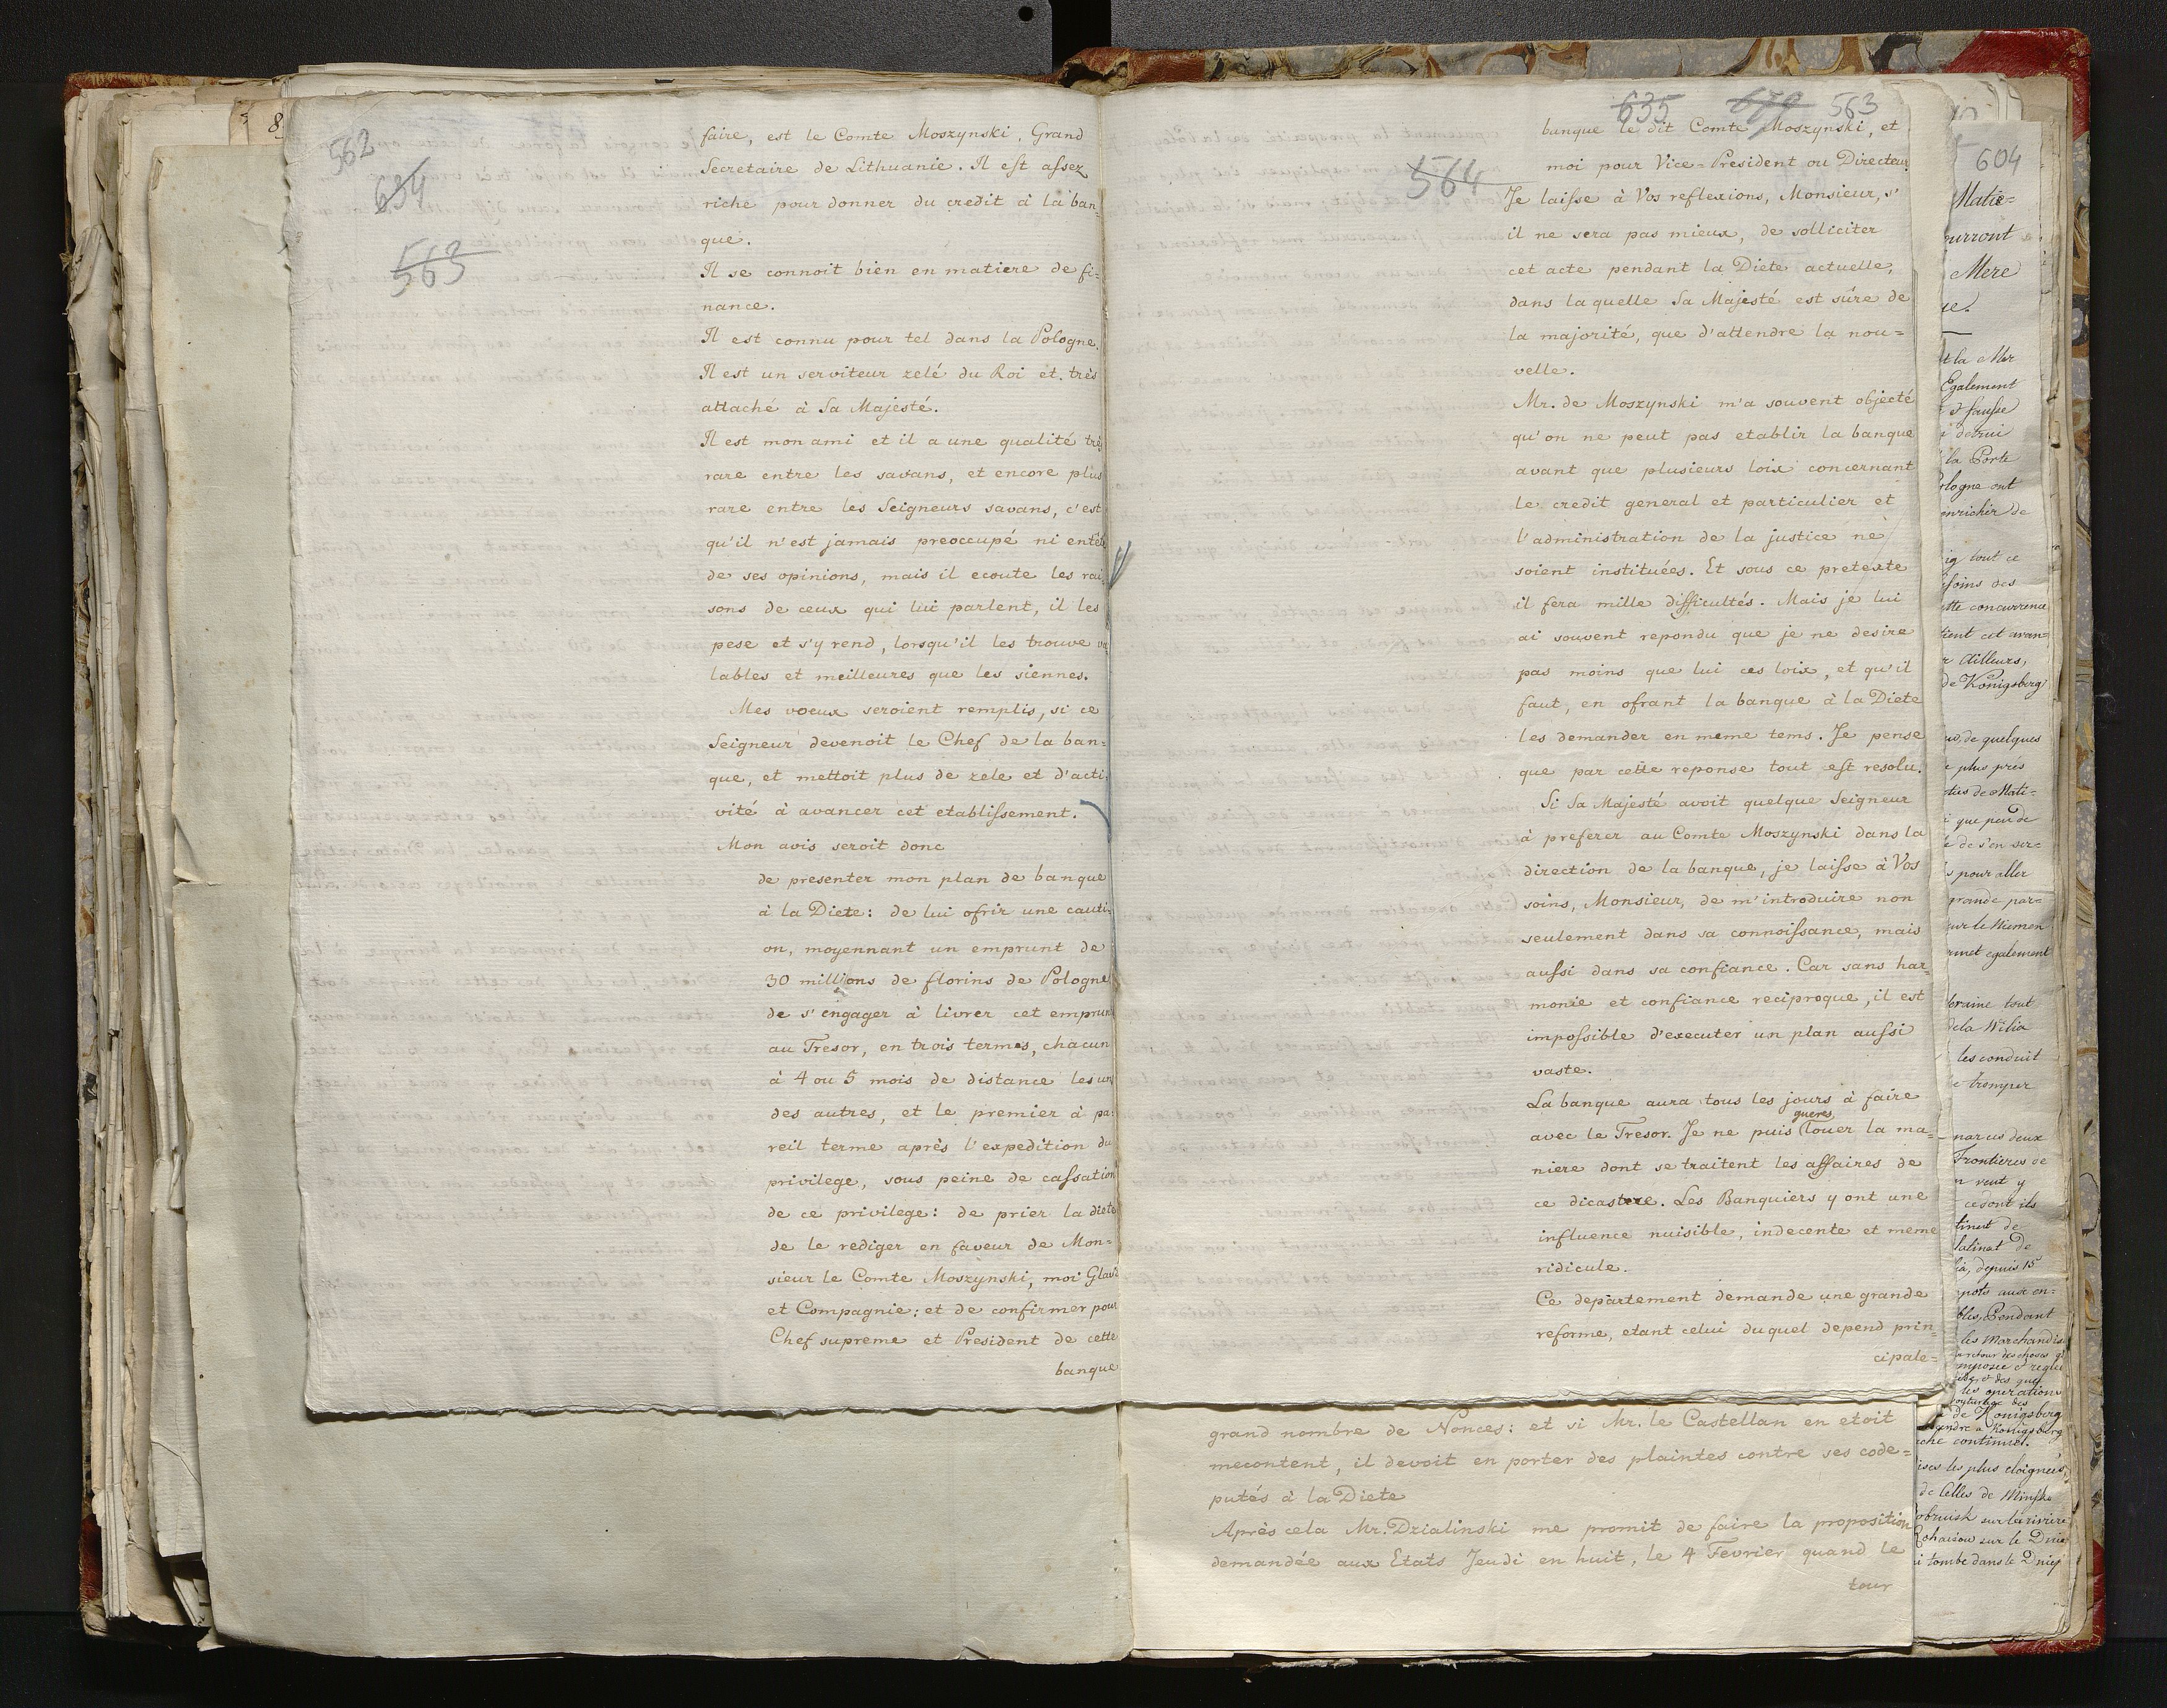 562
634
563
8
faire, est le Comte Moszynski, Grand
Secretaire de Lithuanie. Il est assez
riche pour donner du credit à la ban=
que.
Il se connoit bien en matiere de fi=
nance.
Il est connu pour tel dans la Pologne.
Il est un serviteur zelé du Roi et très
attaché à Sa Majesté.
Il est mon ami et il a une qualité très
rare entre les savans, et encore plus
rare entre les Seigneurs savans, c'est
qu'il n'est jamais preoccupé ni enteté
de ses opinions, mais il ecoute les rai=
sons de ceux qui lui parlent, il les
pese et s'y rend, lorsqu'il les trouve va
lables et meilleures que les siennes.
Mes voeux seroient remplis, si ce
Seigneur devenoit le Chef de la ban=
que, et mettoit plus de zele et d'acti
vité à avancer cet etablissement.
Mon avis seroit donc
de presenter mon plan de banque
à la Diete: de lui ofrir une cauti=
on, moyennant un emprunt de
30 millions de florins de Pologne
de s'engager à livrer cet emprunt
au Tresor, en trois termes, chacun
à 4 ou 5 mois de distance les uns
des autres, et le premier à pa=
reil terme après l'expedition du
privilege, sous peine de cassation
de ce privilege: de prier la diete
de le rediger en faveur de Mon=
sieur le Comte Moszynski, moi Glave
et Compagnie: et de confirmer pour
Chef supreme et President de cette
banque
635 563
564
banque le dit Comte Moszynski, et
moi pour Vice-President ou Directeur.
Je laisse à Vos reflexions, Monsieur, s'
il ne sera pas mieux, de solliciter
cet acte pendant la Diete actuelle,
dans laquelle Sa Majesté est sûre de
la majorité, que d'attendre la nou=
velle.
Mr. de Moszynski m'a souvent objecté
qu'on ne peut pas etablir la banque
avant que plusieurs loix concernant
le credit general et particulier et
l'administration de la justice ne
soient instituées. Et sous ce pretexte
il fera mille difficultés. Mais je lui
ai souvent repondu que je ne desire
pas moins que lui ces loix, et qu'il
faut, en ofrant la banque à la Diete
les demander en meme tems. Je pense
que par cette reponse tout est resolu.
Si Sa Majesté avoit quelque Seigneur
à preferer au Comte Moszynski dans la
direction de la banque, je laisse à Vos
soins, Monsieur, de m'introduire non
seulement dans sa connoissance, mais
aussi dans sa confiance. Car sans har=
monie et confiance reciproque, il est
impossible d'executer un plan aussi
vaste.
La banque aura tous les jours à faire
gueres
avec le Tresor. Je ne puis louer la ma=
niere dont se traitent les affaires de
ce dicastere. Les Banquiers y ont une
influence nuisible, indecente et meme
ridicule.
Ce departement demande une grande
reforme, etant celui duquel depend prin=
cipale=
grand nombre de Nonces: et si Mr. le Castellan en etoit
mecontent, il devoit en porter des plaintes contre ses code=
putés à la Diete
Après cela Mr. Dzialinski me promit de faire la proposition
demandée aux Etats Jeudi en huit, le 4 Fevrier quand le
tour
604
Matie=
ourront
Mere
t la Mer
Egalement
et fausse
la Porte
ologne ont
enrichir de
tout ce
soins des
tte concurrence
tient cet avan=
Ailleurs,
de Königsberg
de quelques
plus près
de Mati=
que peu de
de s'en ser=
pour aller
grande par=
sur le Niemen
rmet egalement
kraine tout
de la Wilia
les conduit
tromper
par ces deux
Frontieres de
veut y
ce dont ils
tinat de
latinat de
depuis 15
pots aux en=
bles, Pendant
les Marchandise
les operations
de Konigsberg
che continuel.
ises les plus eloignées
de Celles de Minsk
obruisk sur la riviere
ohaczow sur le Dnie
i tombe dans le Dniep